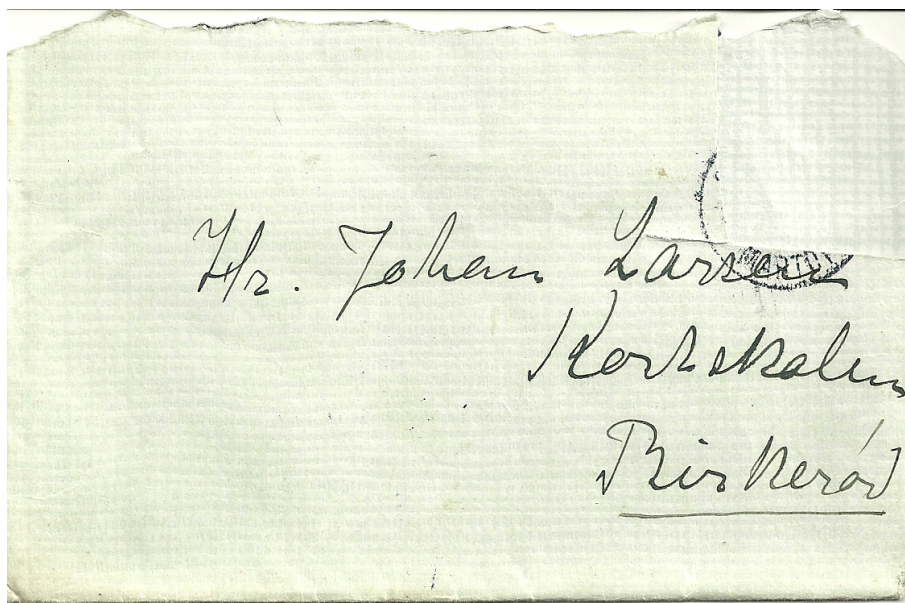 Hr. Johan Larsen
Kostskolen
Birkerød